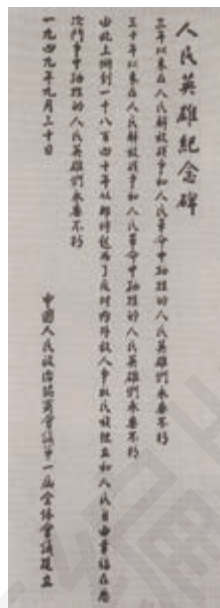 人民英雄紀念碑
三年以來在人民解放戰爭和人民革命中犧牲的人民英雄們永垂不朽
三十年以來在人民解放戰爭和人民革命中犧牲的人民英雄們永垂不朽
由此上溯到一千八百四十年從那時起為了反對內外敵人爭取民族獨立和人民自由幸福在歷
次鬥爭中犧牲的人民英雄們永垂不朽
一九四九年九月三十日
中國人民政治協商會議第一屆全體會議建立